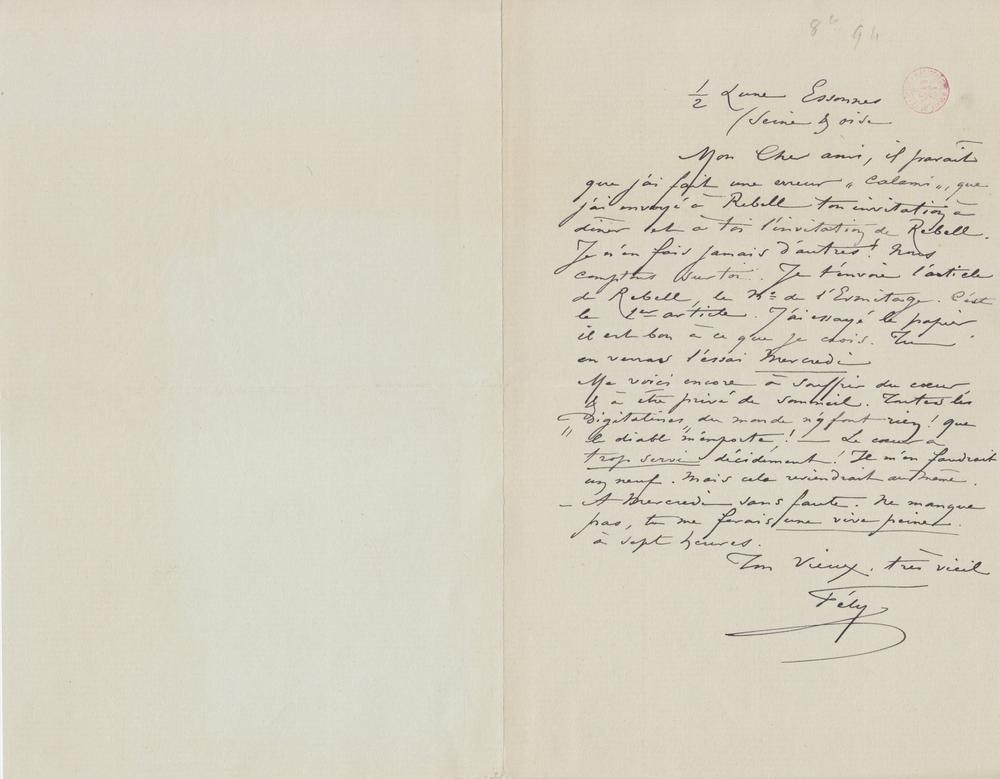 8bre 94
1/2 Lune Essonnes
/Seine & oise
Mon Cher ami, il parait
que j'ai fait une erreur „ Calami „, que
j'ai envoyé à Rebell ton invitation à
dîner et à toi l'invitation de Rebell.
Je n'en fais jamais d'autres ! Nous
comptons sur toi. Je t'envoie l'article
de Rebell, le No de l'Ermitage. C'est
le 1er article. J'ai essayé le papier
il est bon à ce que je crois. Tu
en verras l'essai Mercredi
Me voici encore à souffrir du cœur
& à être privé de sommeil. Toutes les
„ Digitalines „ du monde n'y font rien ! que
le diable m'emporte ! — Le cœur a
trop servi décidément ! Il m'en faudrait
un neuf. Mais cela reviendrait au même.
— A Mercredi sans faute. Ne manque
pas, tu me ferais une vive peine.
à sept heures.
Ton vieux, très vieil
Fély